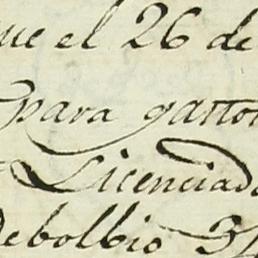 que el 26 de
para gastos
Licenciado
debolbio 3